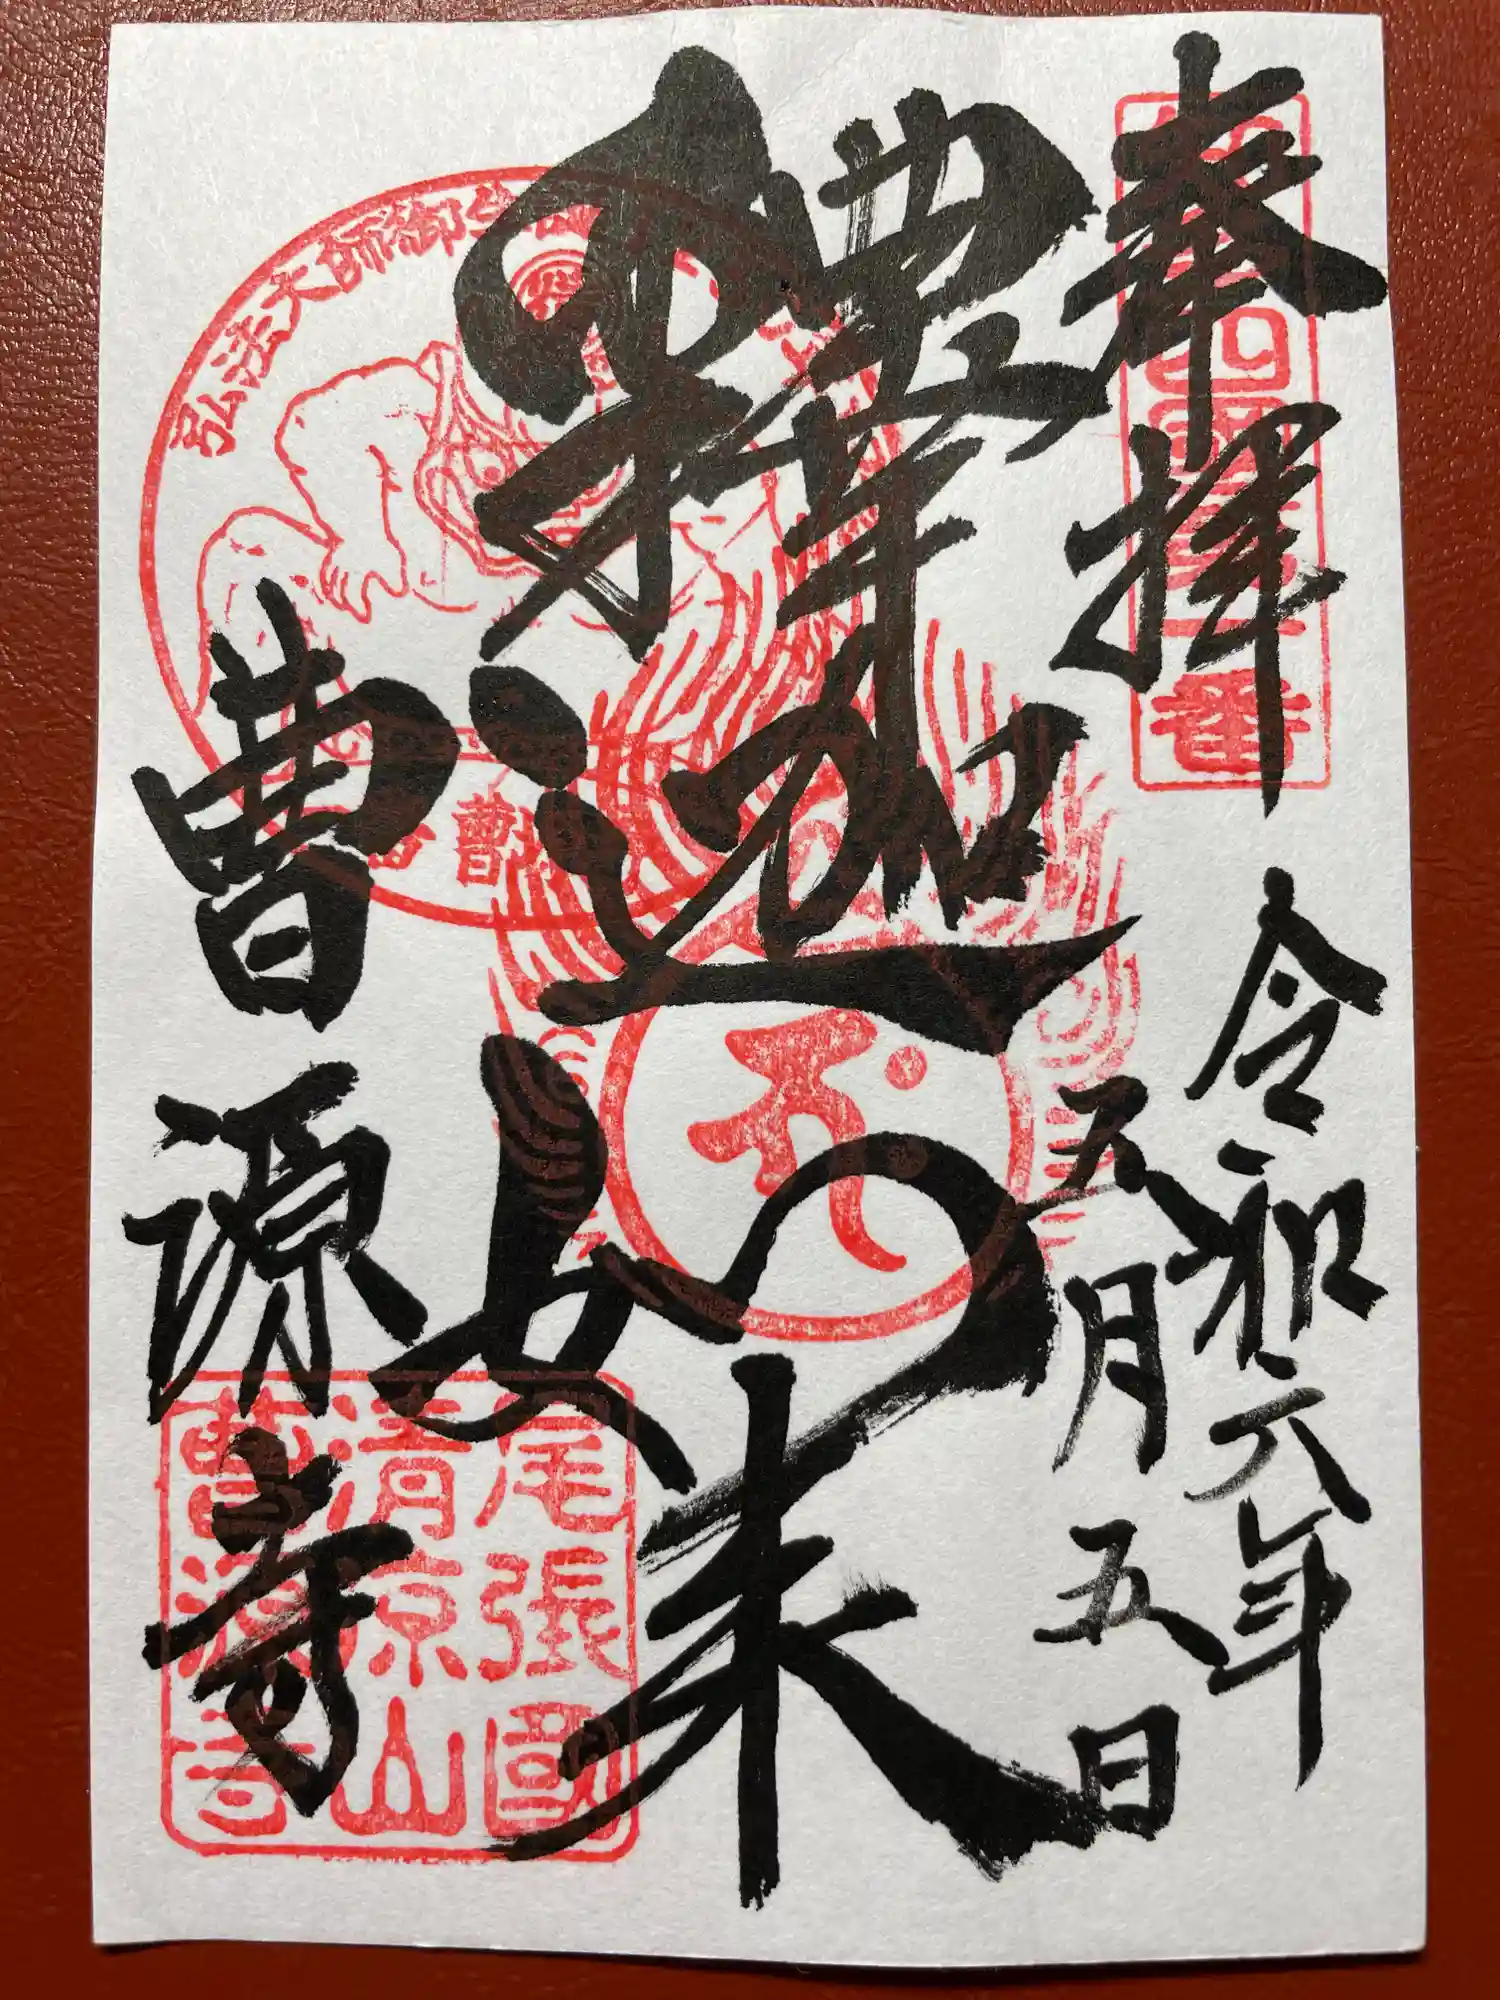 奉拝
令和六年
五月五日
釋迦如来
曹源寺
番
弘法大師御
曹
尾張國
清凉山
曹源寺